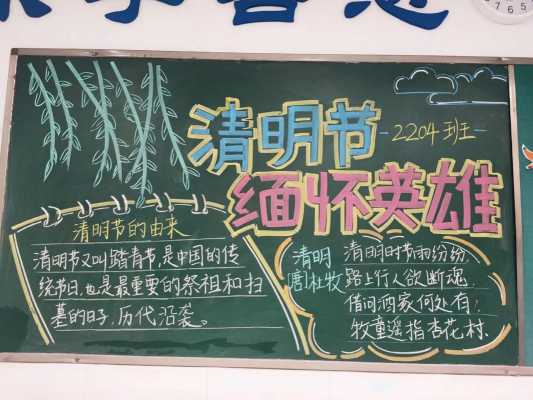 清明节
-2204班-
缅怀英雄
清明节的由来
清明节又叫踏青节,是中国的传
统节日,也是最重要的祭祖和扫
墓的日子,历代沿袭。
清明
唐杜牧
清明时节雨纷纷,
路上行人欲断魂,
借问酒家何处有?
牧童遥指杏花村.
7 6 5